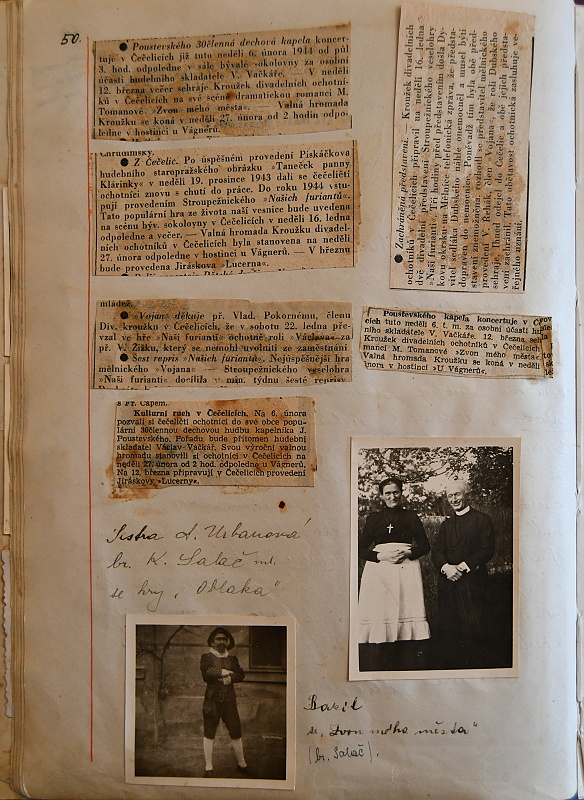 50.
● Poustevského 30členná dechová kapela koncer-
tuje v Čečelicích již tuto neděli 6. února 1944 od půl
3. hod. odpoledne v sále bývalé sokolovny za osobní
účasti hudebního skladatele V. Vačkáře. — V neděli
12. března večer sehraje Kroužek divadelních ochot-
níků v Čečelicích na své scéně dramatickou romanci M.
Tomanové »Zvon mého města«. — Valná hromada
Kroužku se koná v neděli 27. února od 2 hodin odpo-
ledne v hostinci u Vágnerů.
Chrudimský.
● Z Čečelic. Po úspěšném provedení Piskáčkova
hudebního staropražského obrázku »Taneček panny
Klárinky« v neděli 19. prosince 1943 dali se čečeličtí
ochotníci znovu s chutí do práce. Do roku 1944 vstu-
pují provedením Stroupežnického »Našich furiantů«.
Tato populární hra ze života naší vesnice bude uvedena
na scénu býv. sokolovny v Čečelicích v neděli 16. ledna
odpoledne a večer. — Valná hromada Kroužku divadel-
ních ochotníků v Čečelicích byla stanovena na neděli
27. února odpoledne v hostinci u Vágnerů. — V březnu
bude provedena Jiráskova »Lucerna«.
● Zachráněná představení. — Kroužek divadelních
ochotníků v Čečelicích připravil na neděli 16. ledna
dvě divadelní představení Stroupežnického veselohry
»Naši furianti«. Tři hodiny před představením došla Dy-
kovu okrsku na Mělníce telefonická zpráva, že představi-
tel sedláka Dubského náhle onemocněl a musel býti
dopraven do nemocnice. Poněvadž tím byla obě před-
stavení znemožněna, rozhodl se představitel mělnického
provedení V. Řehák, člen »Vojana«, že roli Dubského
sehraje. Ihned odjel do Čečelic a obě jejich představe-
ní zachránil. Tato obětavost ochotnická zasluhuje ve-
řejného uznání.
mládež.
● »Vojan« děkuje př. Vlad. Pokornému, členu
Div. kroužku v Čečelicích, že v sobotu 22. ledna pře-
vzal ve hře »Naši furianti« ochotně roli »Václava« za
př. V. Žižku, který se nemohl uvolniti ze zaměstnání
● Šest repris »Našich furiantů«. Nejúspěšnější hra
mělnického »Vojana« Stroupežnického veselohra
»Naši furianti« docílila v min. týdnu šesté reprisy
Poustevského kapela koncertuje v Če-
cích tuto neděli 6. t. m. za osobní účasti hu
ního skladatele V. Vačkáře. 12. března seh
Kroužek divadelních ochotníků v Čečelicích
manci M. Tomanové »Zvon mého města«.
Valná hromada Kroužku se koná v neděli
nom v hostinci »U Vágnerů«.
s Fr. Čapem.
Kulturní ruch v Čečelicích. Na 6. února
pozvali si čečeličtí ochotníci do své obce popu-
lární 30člennou dechovou hudbu kapelníka J.
Poustevského. Pořadu bude přítomen hudební
skladatel Václav Vačkář. Svou výroční valnou
hromadu stanovili si ochotníci v Čečelicích na
neděli 27. února od 2 hod. odpoledne u Vágnerů.
Na 12. března připravují v Čečelicích provedení
Jiráskovy »Lucerny«.
Sestra A. Urbanová
br. K. Salač ml.
se hry „Oblaka“
Bazil
se „Zvon mého města“
(br. Salač).